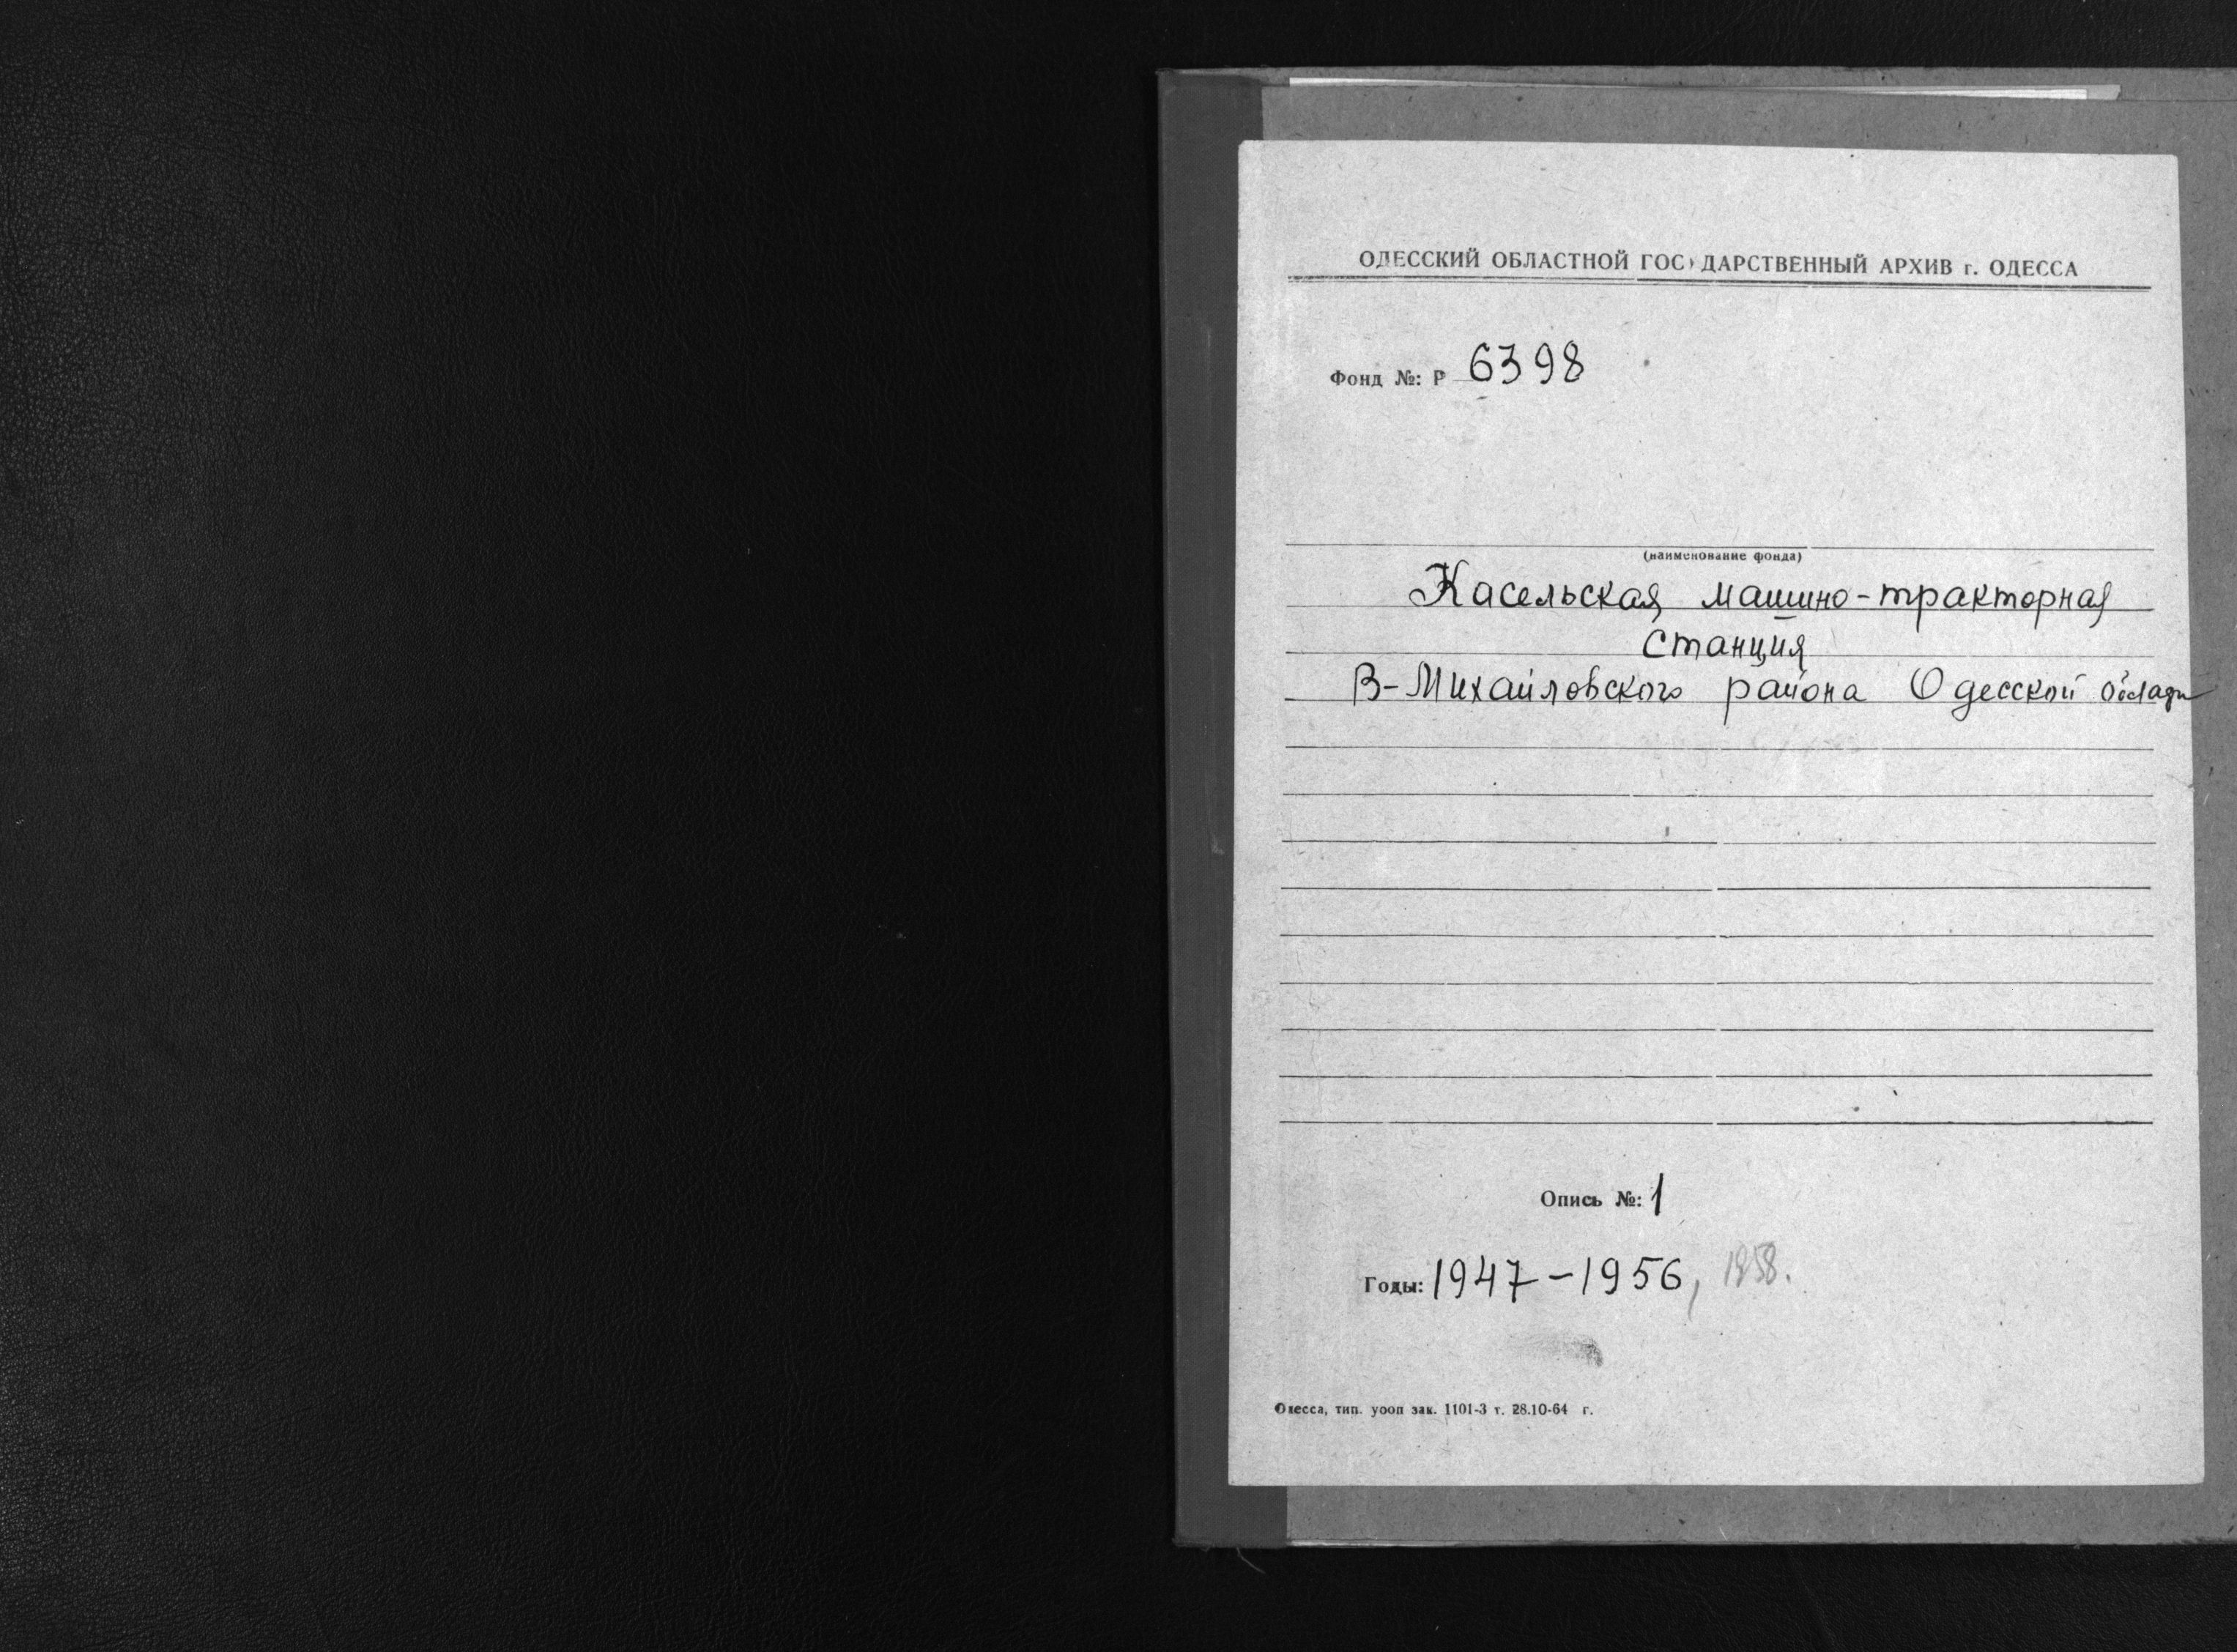 ОДЕССКИЙ ОБЛАСТНОЙ ГОСУДАРСТВЕННЫЙ АРХИВ г. ОДЕССА
Фонд №: Р 6398
(наименование фонда)
Касельская машино-тракторная
станция
В-Михайловского района Одесской
Опись №: 1
Годы: 1947-1956, 1958.
Одесса, тип. уооп зак. 1101-3 т. 28.10-64 г.